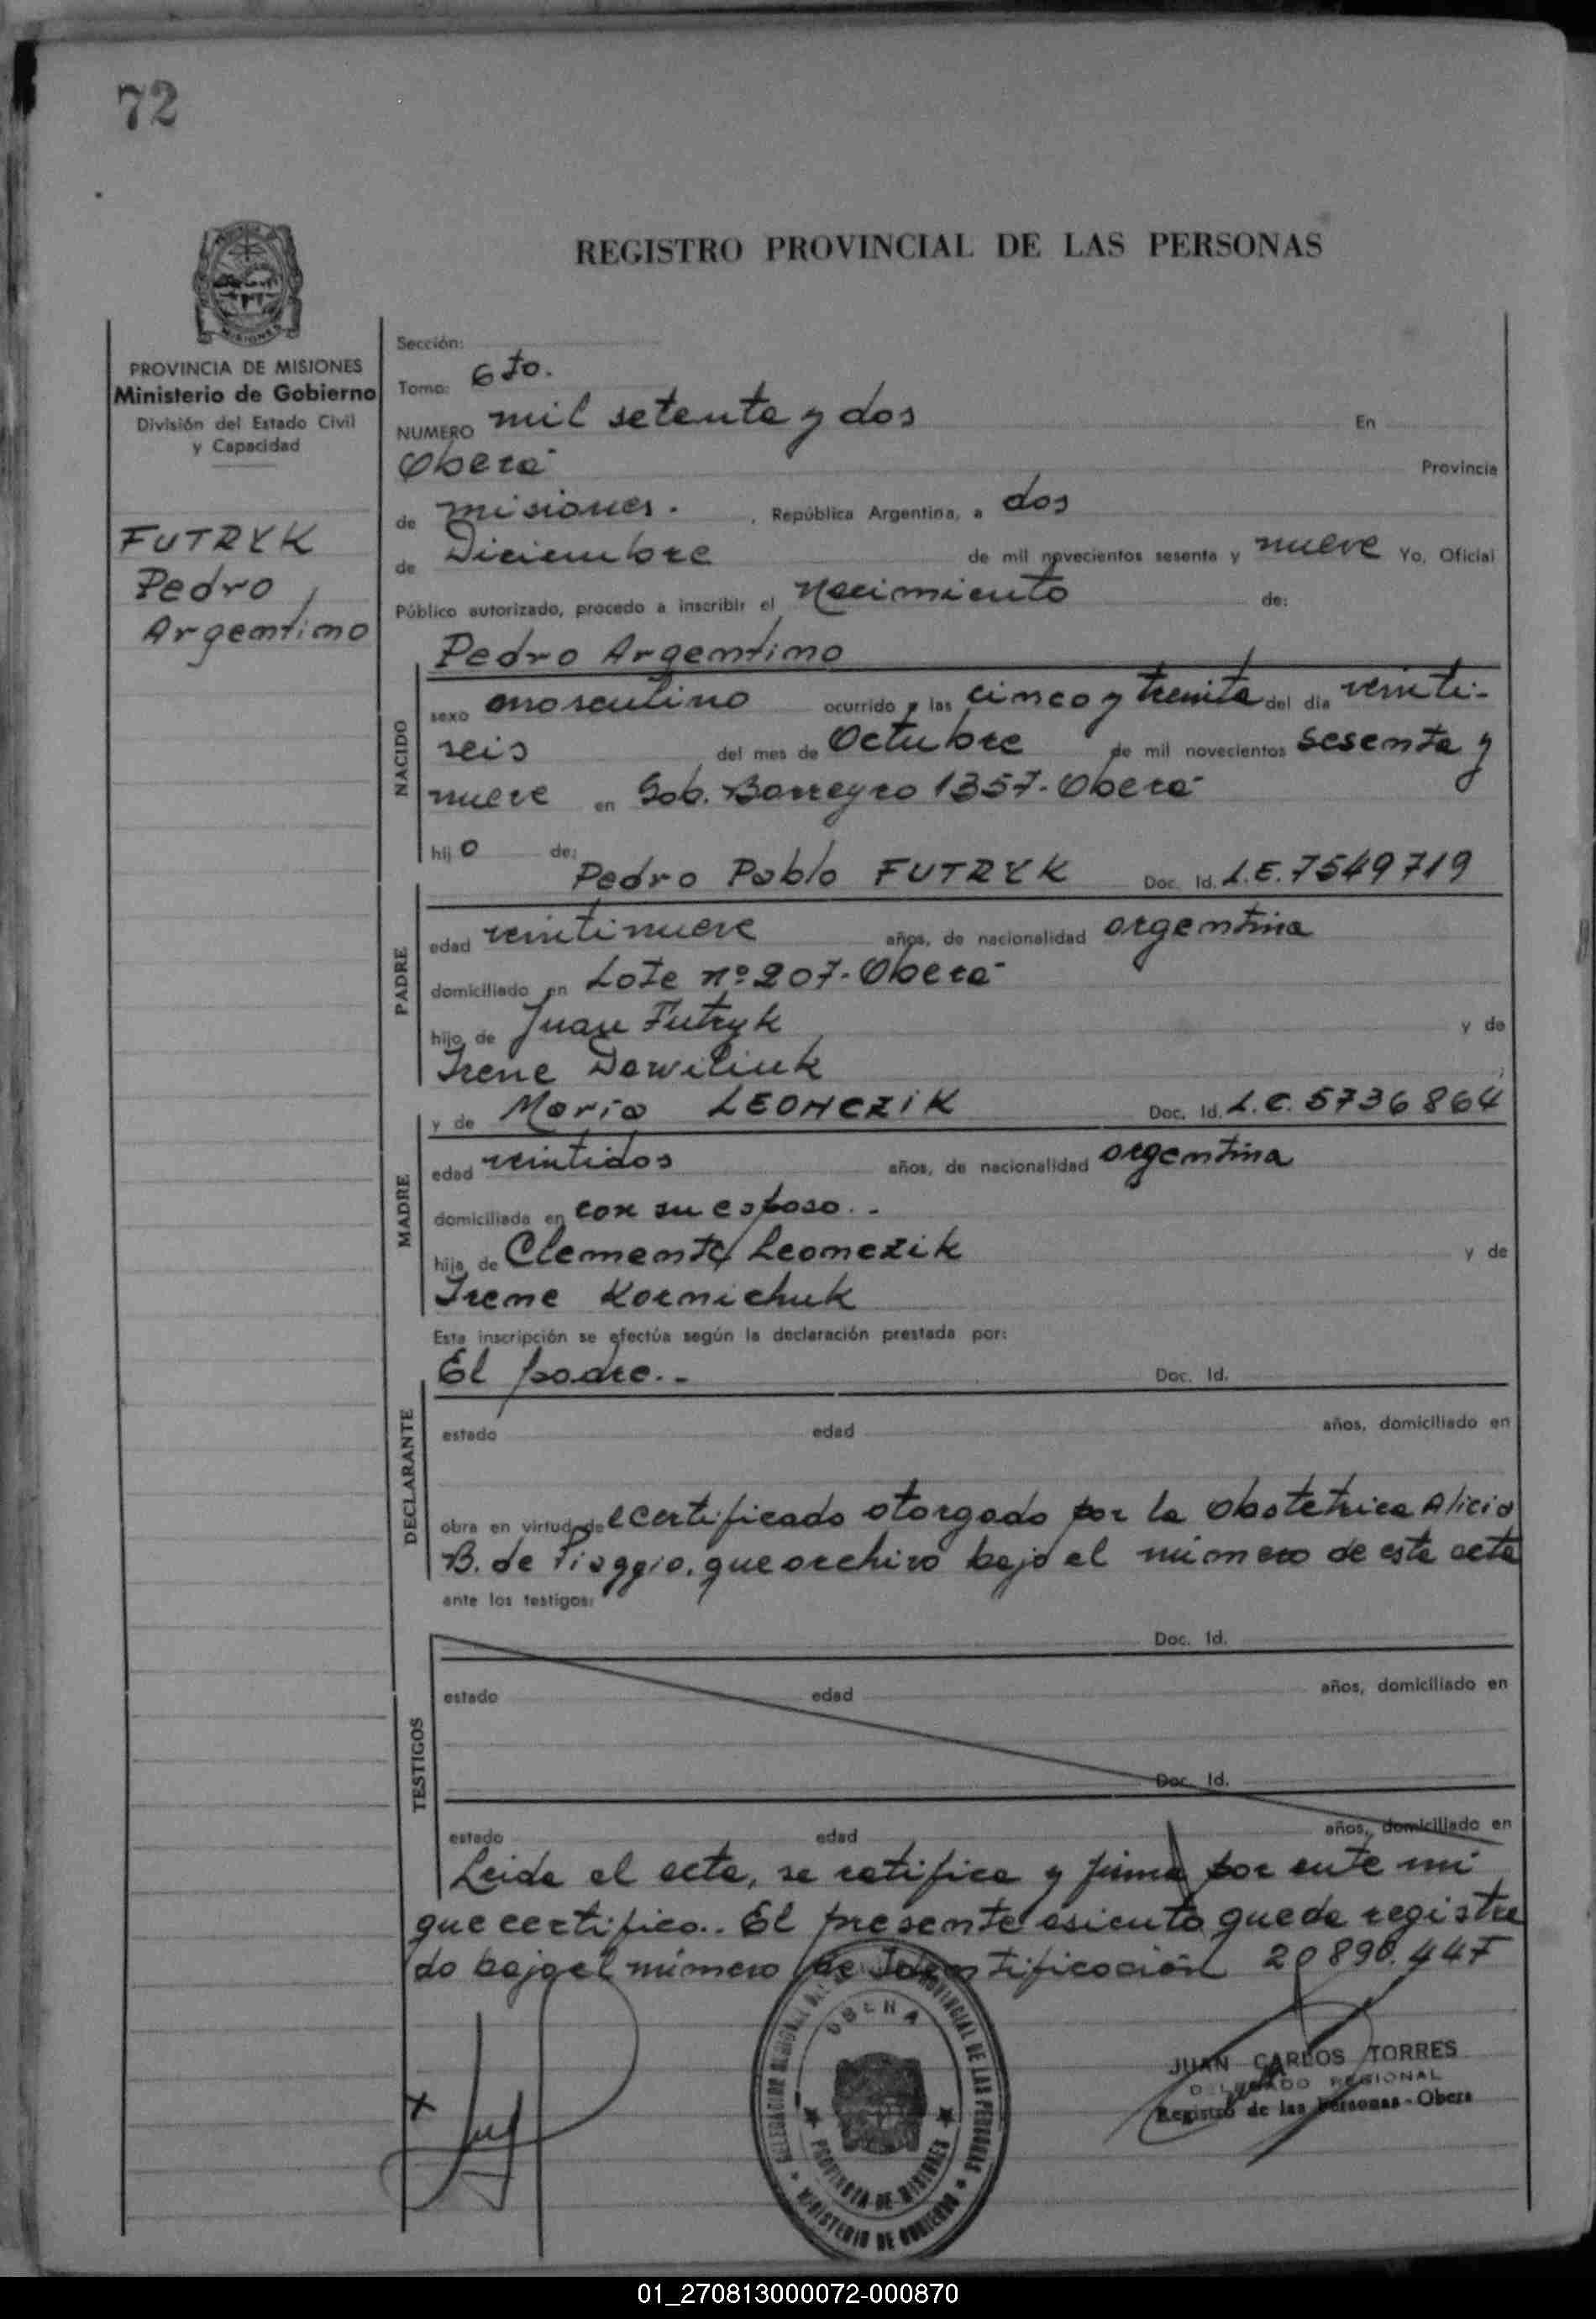 72
REGISTRO PROVINCIAL DE LAS PERSONAS
MISIONES
PROVINCIA DE MISIONES
Ministerio de Gobierno
División del Estado Civil
y Capacidad
FUTRYK
Pedro
Argentino
Sección:
Tomo: 6to.
NUMERO mil setenta y dos En
Oberá Provincia
de misiones. , República Argentina, a dos
de Diciembre de mil novecientos sesenta y nueve Yo, Oficial
Público autorizado, procedo a inscribir el Nacimiento de:
NACIDO
Pedro Argentino
sexo masculino ocurrido a las cinco y treinta del día veinti-
seis del mes de Octubre de mil novecientos sesenta y
nueve en Gob. Barreyro 1357-Oberá
hijo de:
Pedro Pablo FUTRYK Doc. Id. L.E. 7549719
PADRE
edad veintinueve años, de nacionalidad argentina
domiciliado en Lote nº 207-Oberá
hijo de Juan Futryk y de
Irene Dawiliuk
y de María LEONCZIK Doc. Id. L.C. 5736864
MADRE
edad veintidos años, de nacionalidad argentina
domiciliada en con su esposo.-
hija de Clemente Leonczik y de
Irene Kornichuk
Esta inscripción se efectúa según la declaración prestada por:
El padre.- Doc. Id.
DECLARANTE
estado edad años, domiciliado en
obra en virtud de certificado otorgado por la obstetrica Alicia
B. de Piaggio, que archivo bajo el número de esta acta
ante los testigos:
Doc. Id.
TESTIGOS
estado edad años, domiciliado en
Doc. Id.
estado edad años, domiciliado en
Leida el acta, se ratifica y firma por ante mi
que certifico.. El presente asiento queda registra
do bajo el número de Identificación 20890.447
DELEGACION REGIONAL DEL PROVINCIAL DE LAS PERSONAS
OBERA
PROVINCIA DE MISIONES
MINISTERIO DE GOBIERNO
JUAN CARLOS TORRES
DELEGADO REGIONAL
Registro de las Personas - Obera
01_270813000072-000870